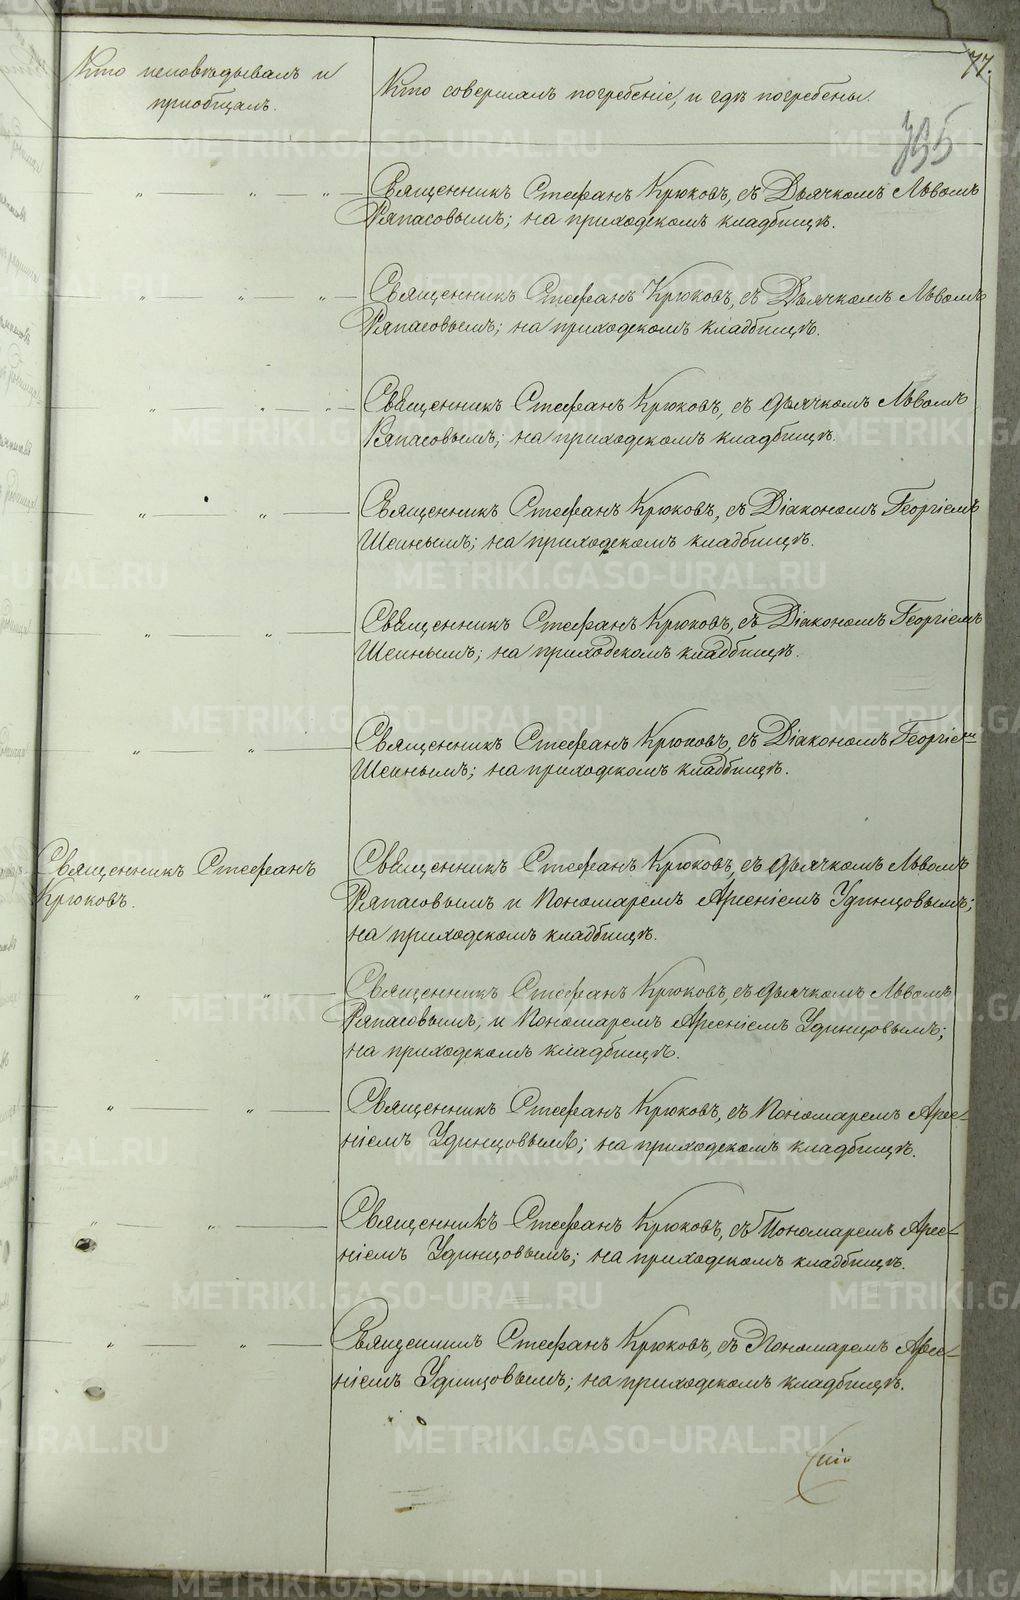 77.
795
Кто исповѣдывалъ и
приобщалъ.
Кто совершалъ погребеніе, и гдѣ погребены.
" " " Священникъ Стефанъ Крюковъ, съ Дьячкомъ Львомъ
Ряпасовымъ; на приходскомъ кладбищѣ.
" " " Священникъ Стефанъ Крюковъ, съ Дьячкомъ Львомъ
Ряпасовымъ; на приходскомъ кладбищѣ.
" " " Священникъ Стефанъ Крюковъ, съ дьячкомъ Львомъ
Ряпасовымъ; на приходскомъ кладбищѣ.
" " Священникъ Стефанъ Крюковъ, съ Діакономъ Георгіемъ
Шеинымъ; на приходскомъ кладбищѣ.
" " Священникъ Стефанъ Крюковъ, съ Діакономъ Георгіемъ
Шеинымъ; на приходскомъ кладбищѣ.
" " Священникъ Стефанъ Крюковъ, съ Діакономъ Георгіемъ
Шеинымъ; на приходскомъ кладбищѣ.
Священникъ Стефанъ
Крюковъ.
Священникъ Стефанъ Крюковъ, съ дьячкомъ Львомъ
Ряпасовымъ и Пономаремъ Арсеніемъ Удинцовымъ;
на приходскомъ кладбищѣ.
" " Священникъ Стефанъ Крюковъ, съ дьячкомъ Львомъ
Ряпасовымъ, и Пономаремъ Арсеніемъ Удинцовымъ;
на приходскомъ кладбищѣ.
" " Священникъ Стефанъ Крюковъ, съ Пономаремъ Арсе-
ніемъ Удинцовымъ; на приходскомъ кладбищѣ.
" " Священникъ Стефанъ Крюковъ, съ Пономаремъ Арсе-
ніемъ Удинцовымъ; на приходскомъ кладбищѣ.
" " Священникъ Стефанъ Крюковъ, съ Пономаремъ Арсе-
ніемъ Удинцовымъ; на приходскомъ кладбищѣ.
METRIKI.GASO-URAL.RU